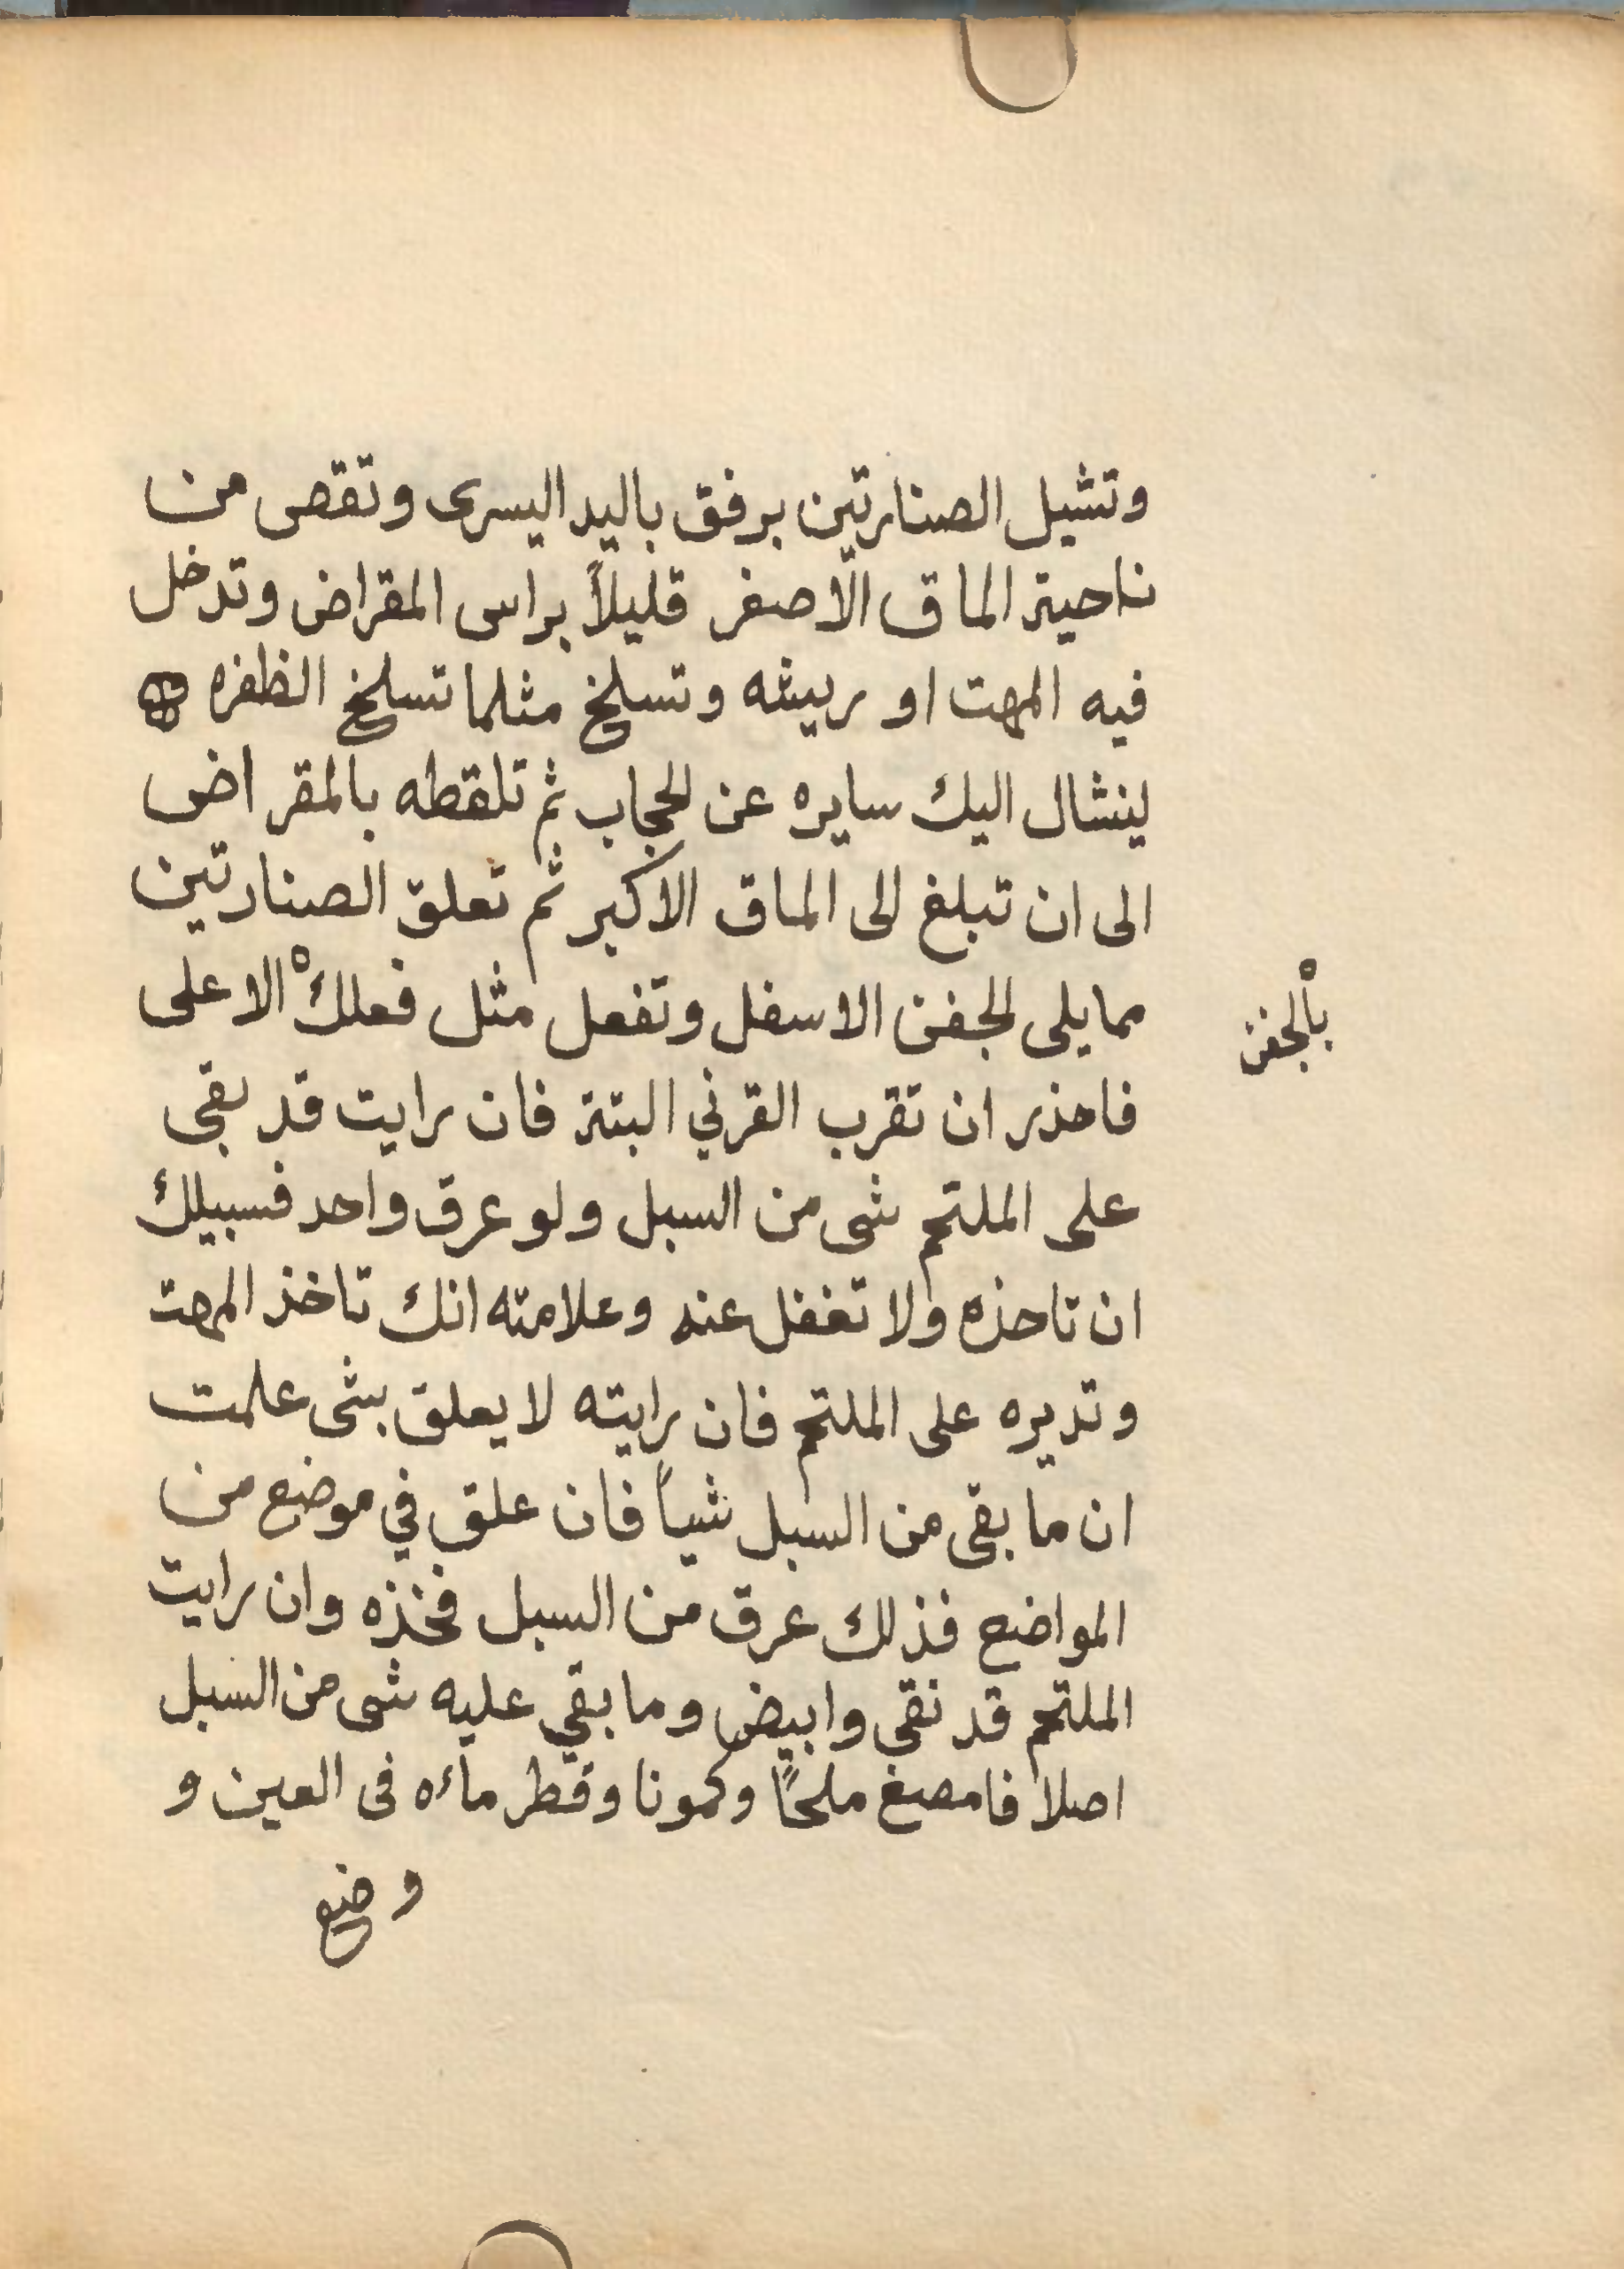 وتشيل الصنارتين برفق باليد اليسرى وتقص من
ناحية الماق الاصغر قليلاً براس المقراض وتدخل
فيه المهت او ريشه وتسلخ مثلما تسلخ الظفره
لينشال اليك سايره عن الحجاب ثم تلقطه بالمقراض
الى ان تبلغ الى الماق الاكبر ثم تعلق الصنارتين
مما يلى الجفن الاسفل وتفعل مثل فعلك الاعلى
بالجفن
فاحذر ان تقرب القرني البتة فان رايت قد بقى
على الملتحم شى من السبل ولو عرق واحد فسبيلك
ان تاحذه ولا تغفل عنه وعلامته انك تاخذ المهت
وتديره على الملتحم فان رايته لا يعلق بشى علمت
ان ما بقى من السبل شياً فان علق في موضع من
المواضع فذلك عرق من السبل فخذه وان رايت
الملتحم قد نقي وابيض وما بقي عليه شى من السبل
اصلا فامضغ ملحًا وكمونا وقطر ماءه فى العين و
وضع